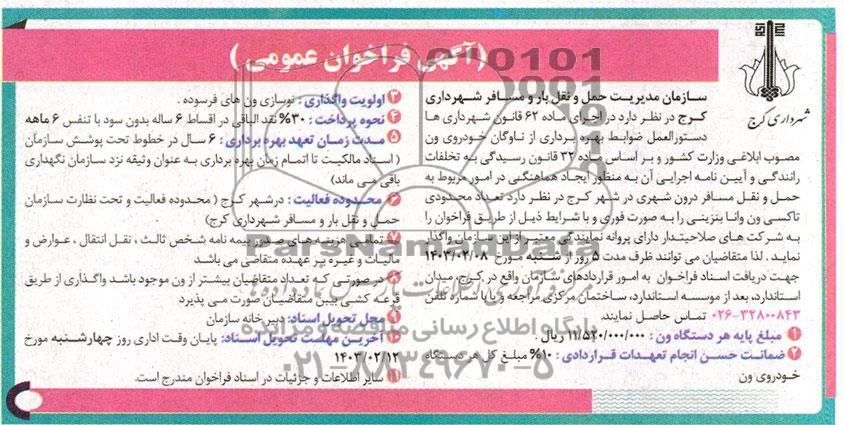 (آگهی فراخوان عمومی)
شهرداری کرج
سازمان مدیریت حمل و نقل بار و مسافر شهرداری
کرج در نظر دارد در اجرای ماده ۶۲ قانون شهرداری ها
دستورالعمل ضوابط بهره برداری از ناوگان خودروی ون
مصوب ابلاغی وزارت کشور و بر اساس ماده ۳۲ قانون رسیدگی به تخلفات
رانندگی و آیین نامه اجرایی آن به منظور ایجاد هماهنگی در امور مربوط به
حمل و نقل مسافر درون شهری در شهر کرج در نظر دارد تعداد محدودی
تاکسی ون وانا بنزینی را به صورت فوری و با شرایط ذیل از طریق فراخوان را
به شرکت های صلاحیتدار دارای پروانه نمایندگی معتبر از این سازمان واگذار
نماید . لذا متقاضیان می توانند ظرف مدت ۵ روز از شنبه مورخ ۱۴۰۳/۰۲/۰۸
جهت دریافت اسناد فراخوان به امور قراردادهای سازمان واقع در کرج، میدان
استاندارد، بعد از موسسه استاندارد، ساختمان مرکزی مراجعه و یا با شماره تلفن
۰۲۶-۳۲۸۰۰۸۴۳ تماس حاصل نمایند.
۱ مبلغ پایه هر دستگاه ون : ۱۱/۵۲۰/۰۰۰/۰۰۰ ریال .
۲ ضمانت حسن انجام تعهدات قراردادی : ۱۰% مبلغ کل هر دستگاه
خودروی ون
۳ اولویت واگذاری : نوسازی ون های فرسوده .
۴ نحوه پرداخت : ۳۰% نقد الباقی در اقساط ۶ ساله بدون سود با تنفس ۶ ماهه
۵ مدت زمان تعهد بهره برداری : ۶ سال در خطوط تحت پوشش سازمان
( اسناد مالکیت تا اتمام زمان بهره برداری به عنوان وثیقه نزد سازمان نگهداری
باقی می ماند)
۶ محدوده فعالیت : درشهر کرج ( محدوده فعالیت و تحت نظارت سازمان
حمل و نقل بار و مسافر شهرداری کرج)
۷ تمامی هزینه های صدور بیمه نامه شخص ثالث ، نقل انتقال ، عوارض و
مالیات و غیره بر عهده متقاضی می باشد
۸ در صورتی که تعداد متقاضیان بیشتر از ون موجود باشد واگذاری از طریق
قرعه کشی بین متقاضیان صورت می پذیرد
۹ محل تحویل اسناد: دبیرخانه سازمان
۱۰ آخرین مهلت تحویل اسناد: پایان وقت اداری روز چهارشنبه مورخ
۱۴۰۳/۰۲/۱۲
۱۱ سایر اطلاعات و جزئیات در اسناد فراخوان مندرج است.
ParsNamadData
پایگاه اطلاع رسانی مناقصه و مزایده
۰۲۱-۸۸۳۴۹۶۷۰-۵